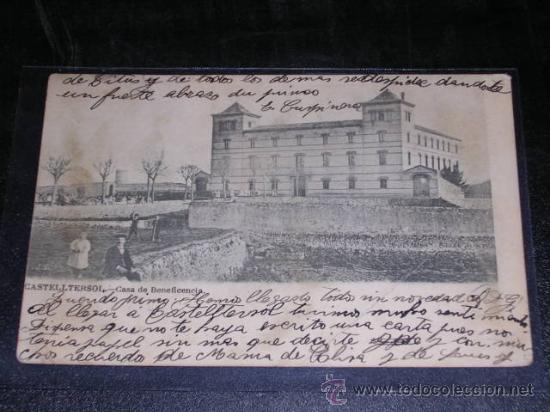 de Titus y de todos los demas se despide dandote
un fuerte abrazo tu primo
C Cuspinera
CASTELLTERSOL.—Casa de Beneficencia
Querido primo: Hemos llegado todos sin novedad
Al llegar à Castelltersol tuvimos mucho sentimiento
Dispensa que no te haya escrito una carta pues no
tenia papel sin mas que decirte y con mu
chos recuerdos de Mama de Elvira y de
todocoleccion.net